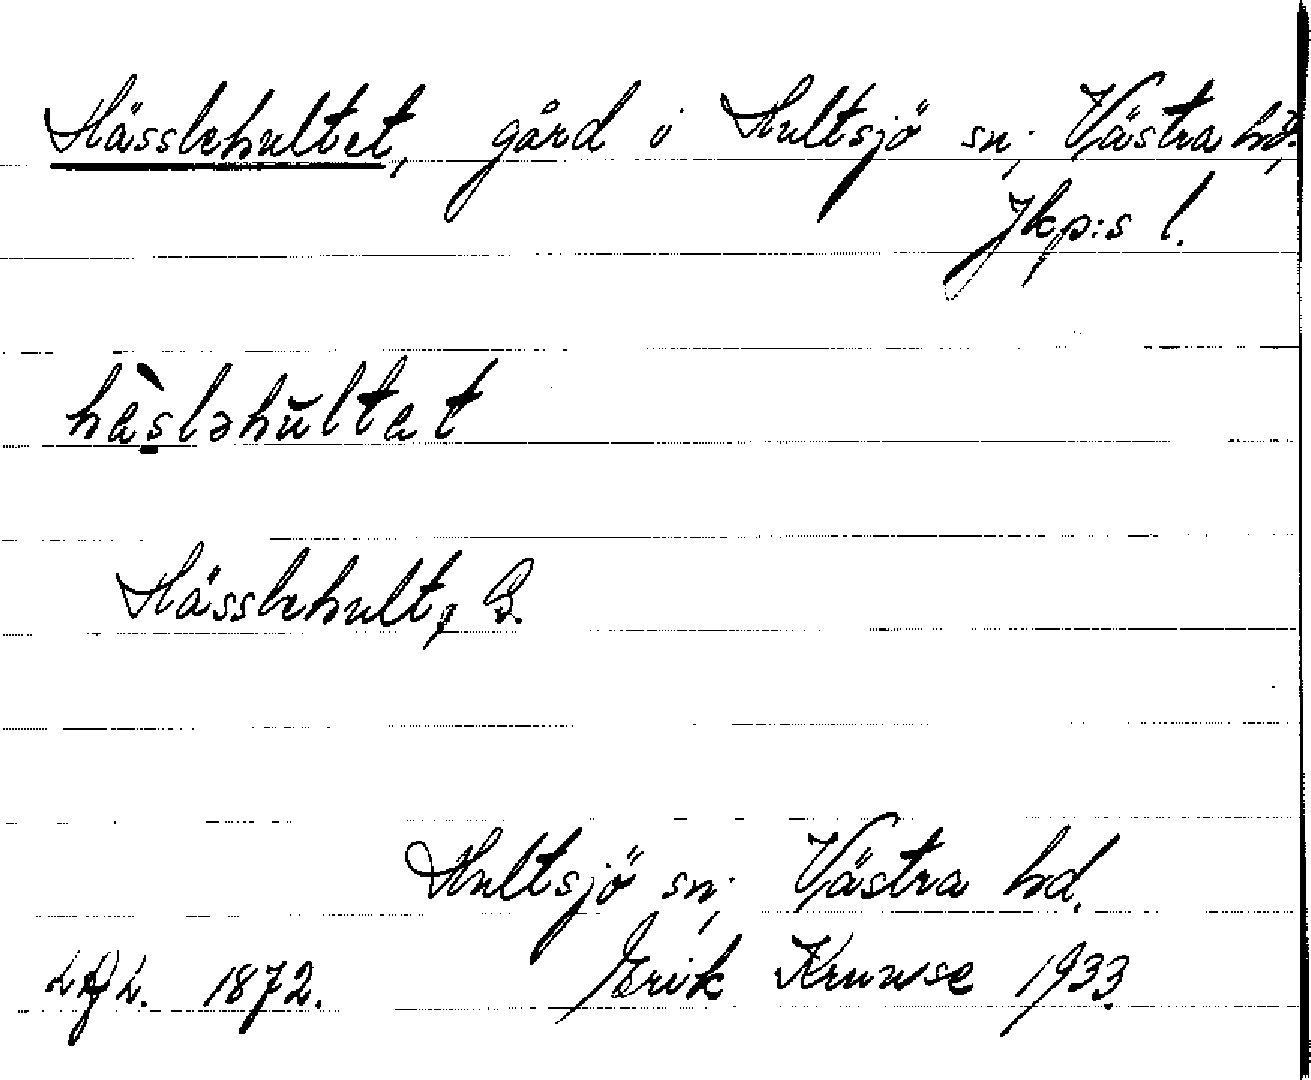 Hässlehultet, gård i Hultsjö sn; Västra hd,
Jkp:s l.
hàsləhŭltet
Hässlehult, G.
Hultsjö sn; Västra hd.
1872. Erik Kruuse 1933.